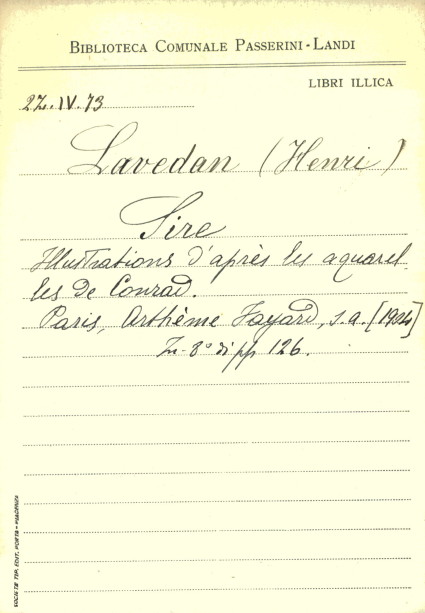 BIBLIOTECA COMUNALE PASSERINI-LANDI
LIBRI ILLICA
2Z.IV.73
Lavedan (Henri)
Sire
Illustrations d'après les aquarel-
les de Conrad.
Paris, Arthème Fayard, s.a. [1924]
In-8° di pp 126.
SOCIETÀ TIP. EDIT. PORTA - PIACENZA